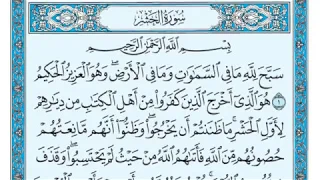 سُورَةُ الحَشْرِ
بِسْمِ اللَّهِ الرَّحْمَٰنِ الرَّحِيمِ
سَبَّحَ لِلَّهِ مَا فِي السَّمَٰوَٰتِ وَمَا فِي الْأَرْضِ ۖ وَهُوَ الْعَزِيزُ الْحَكِيمُ
١ هُوَ الَّذِي أَخْرَجَ الَّذِينَ كَفَرُوا مِنْ أَهْلِ الْكِتَٰبِ مِن دِيَٰرِهِمْ
لِأَوَّلِ الْحَشْرِ ۚ مَا ظَنَنتُمْ أَن يَخْرُجُوا ۖ وَظَنُّوا أَنَّهُم مَّانِعَتُهُمْ
حُصُونُهُم مِّنَ اللَّهِ فَأَتَىٰهُمُ اللَّهُ مِنْ حَيْثُ لَمْ يَحْتَسِبُوا ۖ وَقَذَفَ